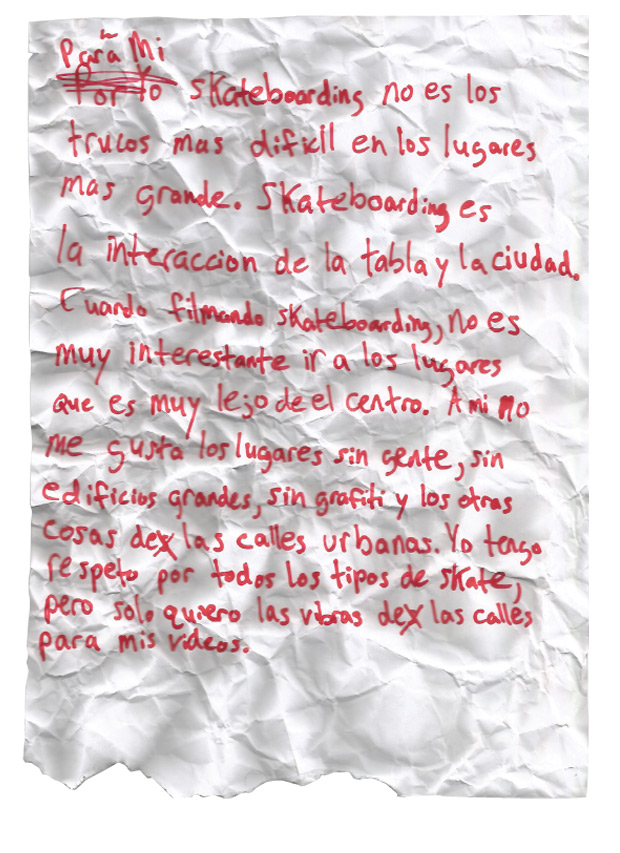 Para Mi
Por Yo Skateboarding no es los
trucos mas dificil en los lugares
mas grande. Skateboarding es
la interaccion de la tabla y la ciudad.
Cuando filmando skateboarding, no es
muy interestante ir a los lugares
que es muy lejo de el centro. A mi no
me gusta los lugares sin gente, sin
edificios grandes, sin grafiti y los otras
cosas de las calles urbanas. Yo tengo
respeto por todos los tipos de skate,
pero solo quiero las vibras de las calles
para mis videos.